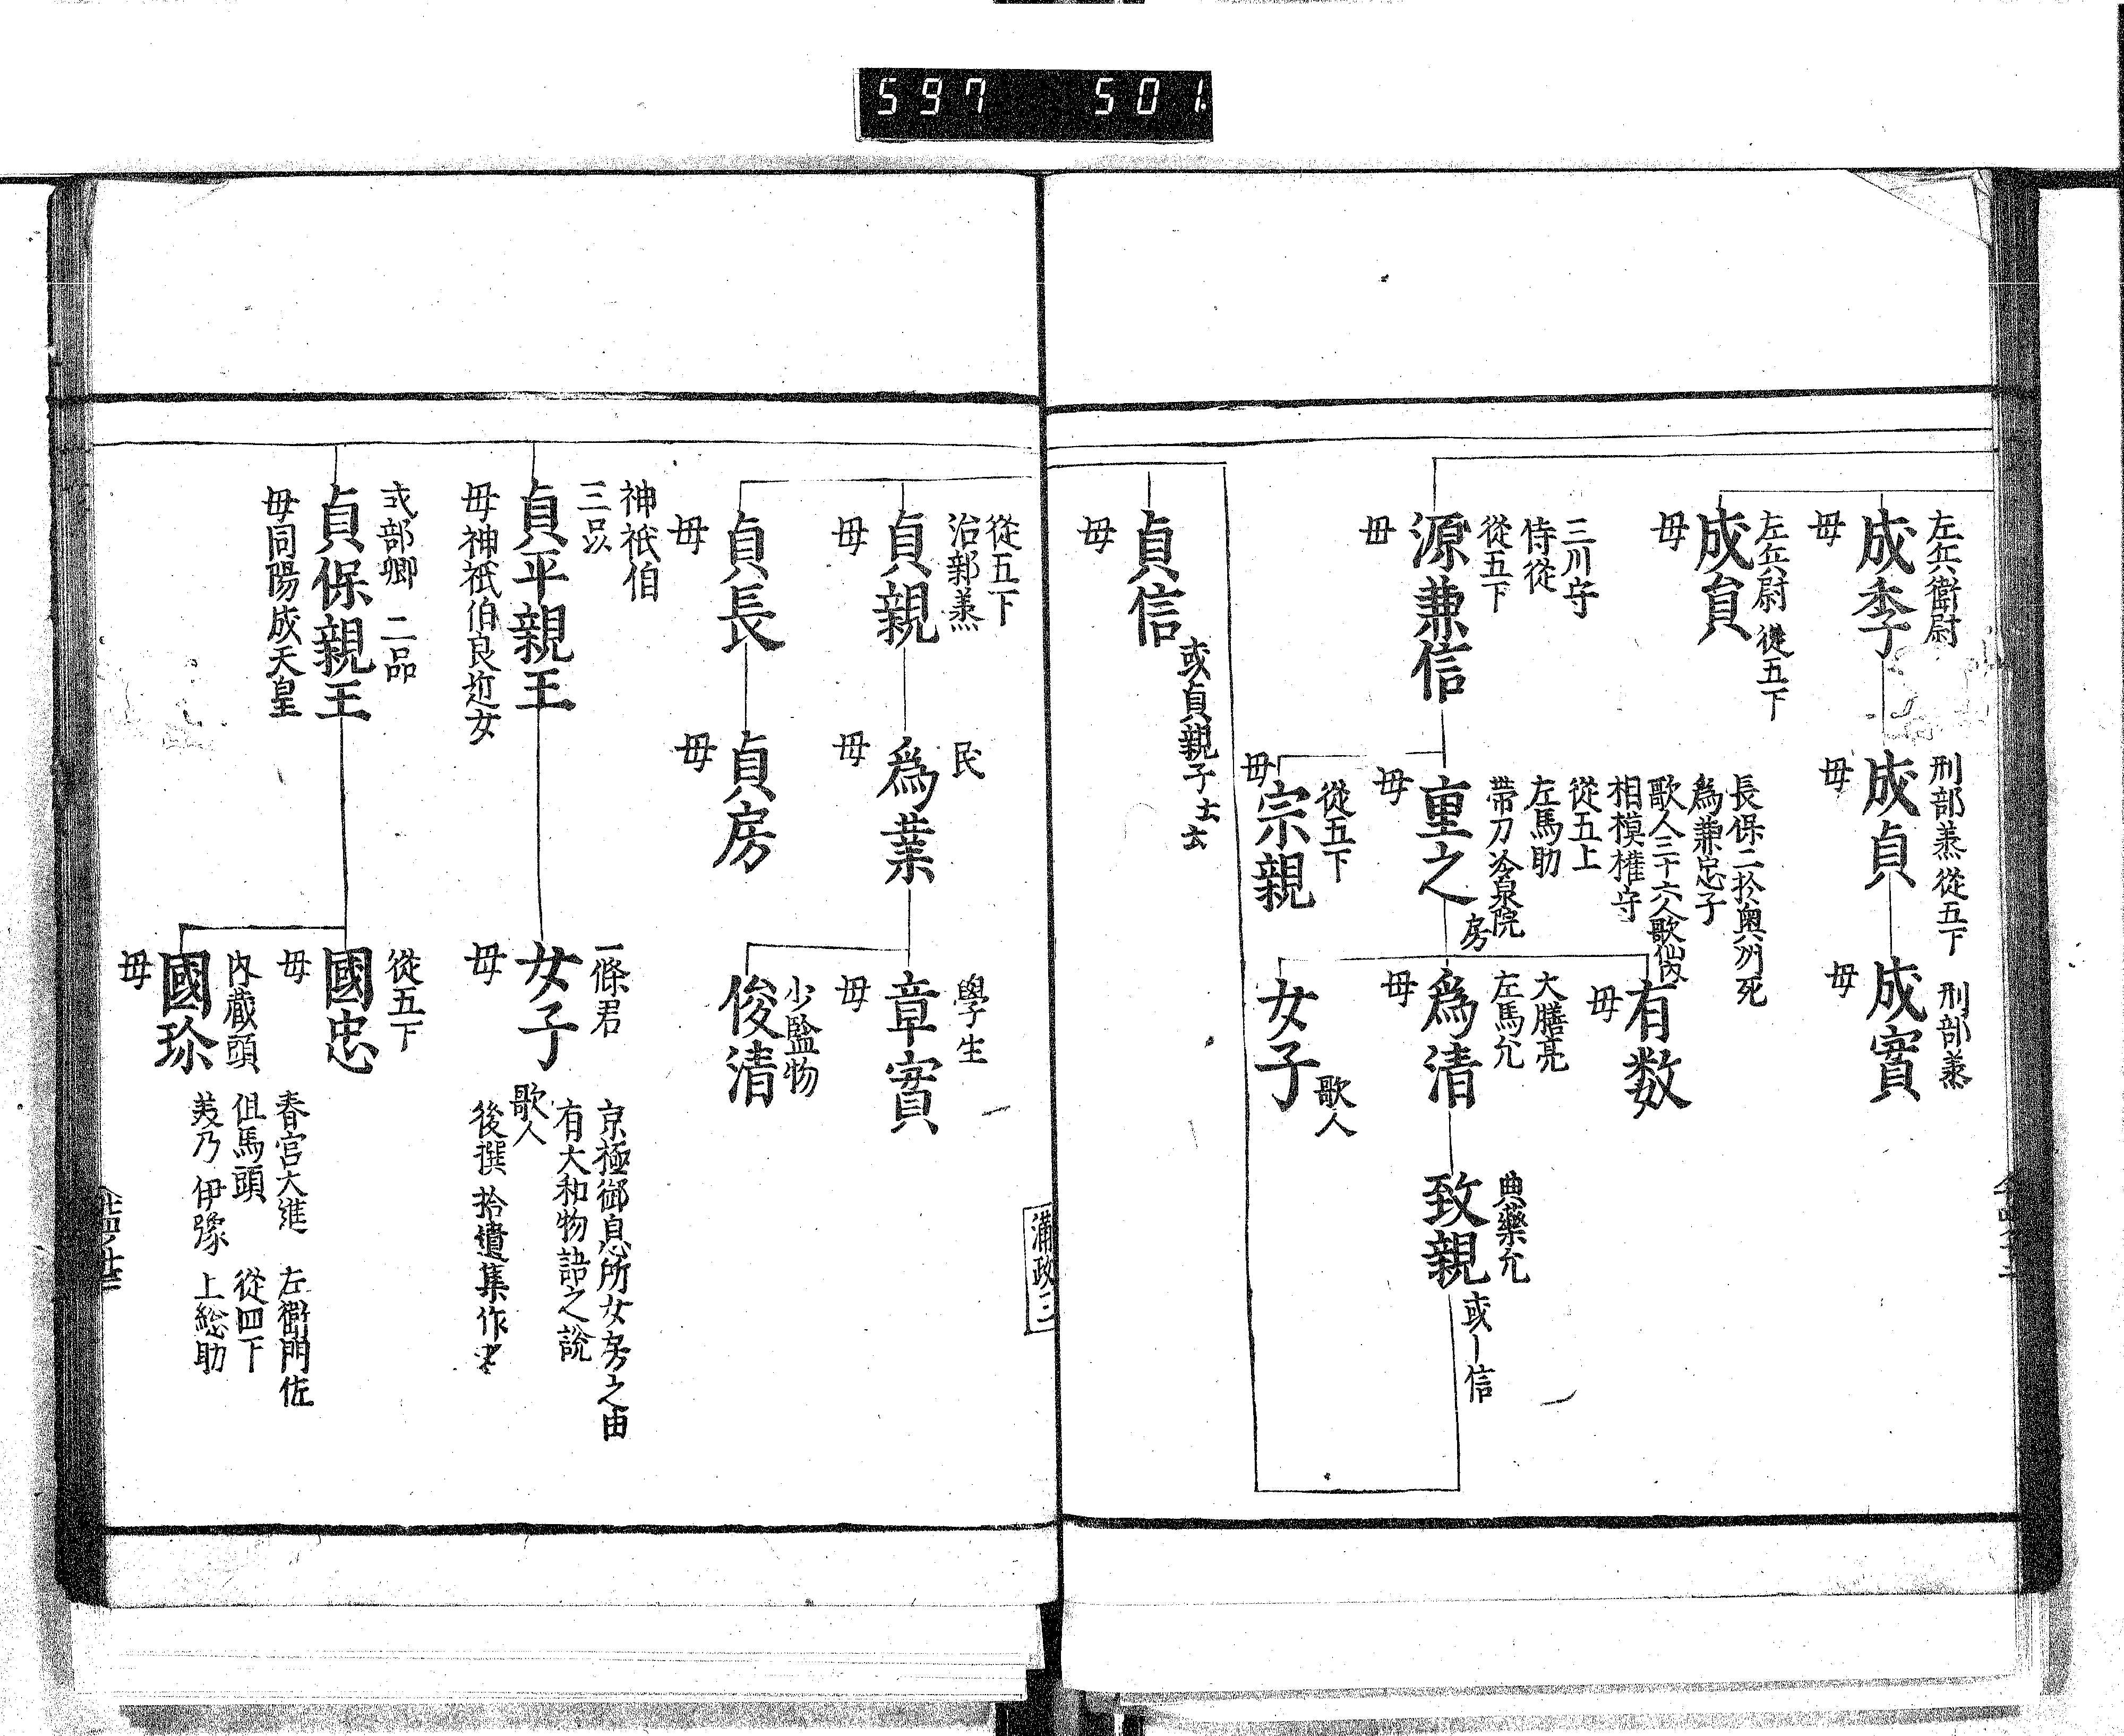 597 501
左兵衛尉
成季
母
刑部丞 從五下
成貞
母
刑部丞
成實
母
左兵尉 從五下
成貟
母
三川守
侍從
從五下
源兼信
母
長保二於奥州死
為兼忠子
歌人三十六人歌仙内
相模權守
從五上
左馬助
帯刀冷泉院
重之
母
有数
母
大膳亮
左馬允
房
為清
母
典藥允
致親
或ー信
女子
歌人
從五下
宗親
母
貞信
或貞親子云云
母
從五下
治部丞
貞親
母
民
爲業
母
學生
章實
母
少監物
俊清
貞長
母
貞房
母
神祇伯
三品
貞平親王
母神祇伯良近女
一條君
女子
母
京極御息所女房之由
有大和物語之説
歌人
後撰 拾遺集作者
式部卿 二品
貞保親王
母同陽成天皇
從五下
國忠
母
内蔵頭
國珍
母
春宮大進 左衛門佐
但馬頭 從四下
美乃 伊豫 上総助